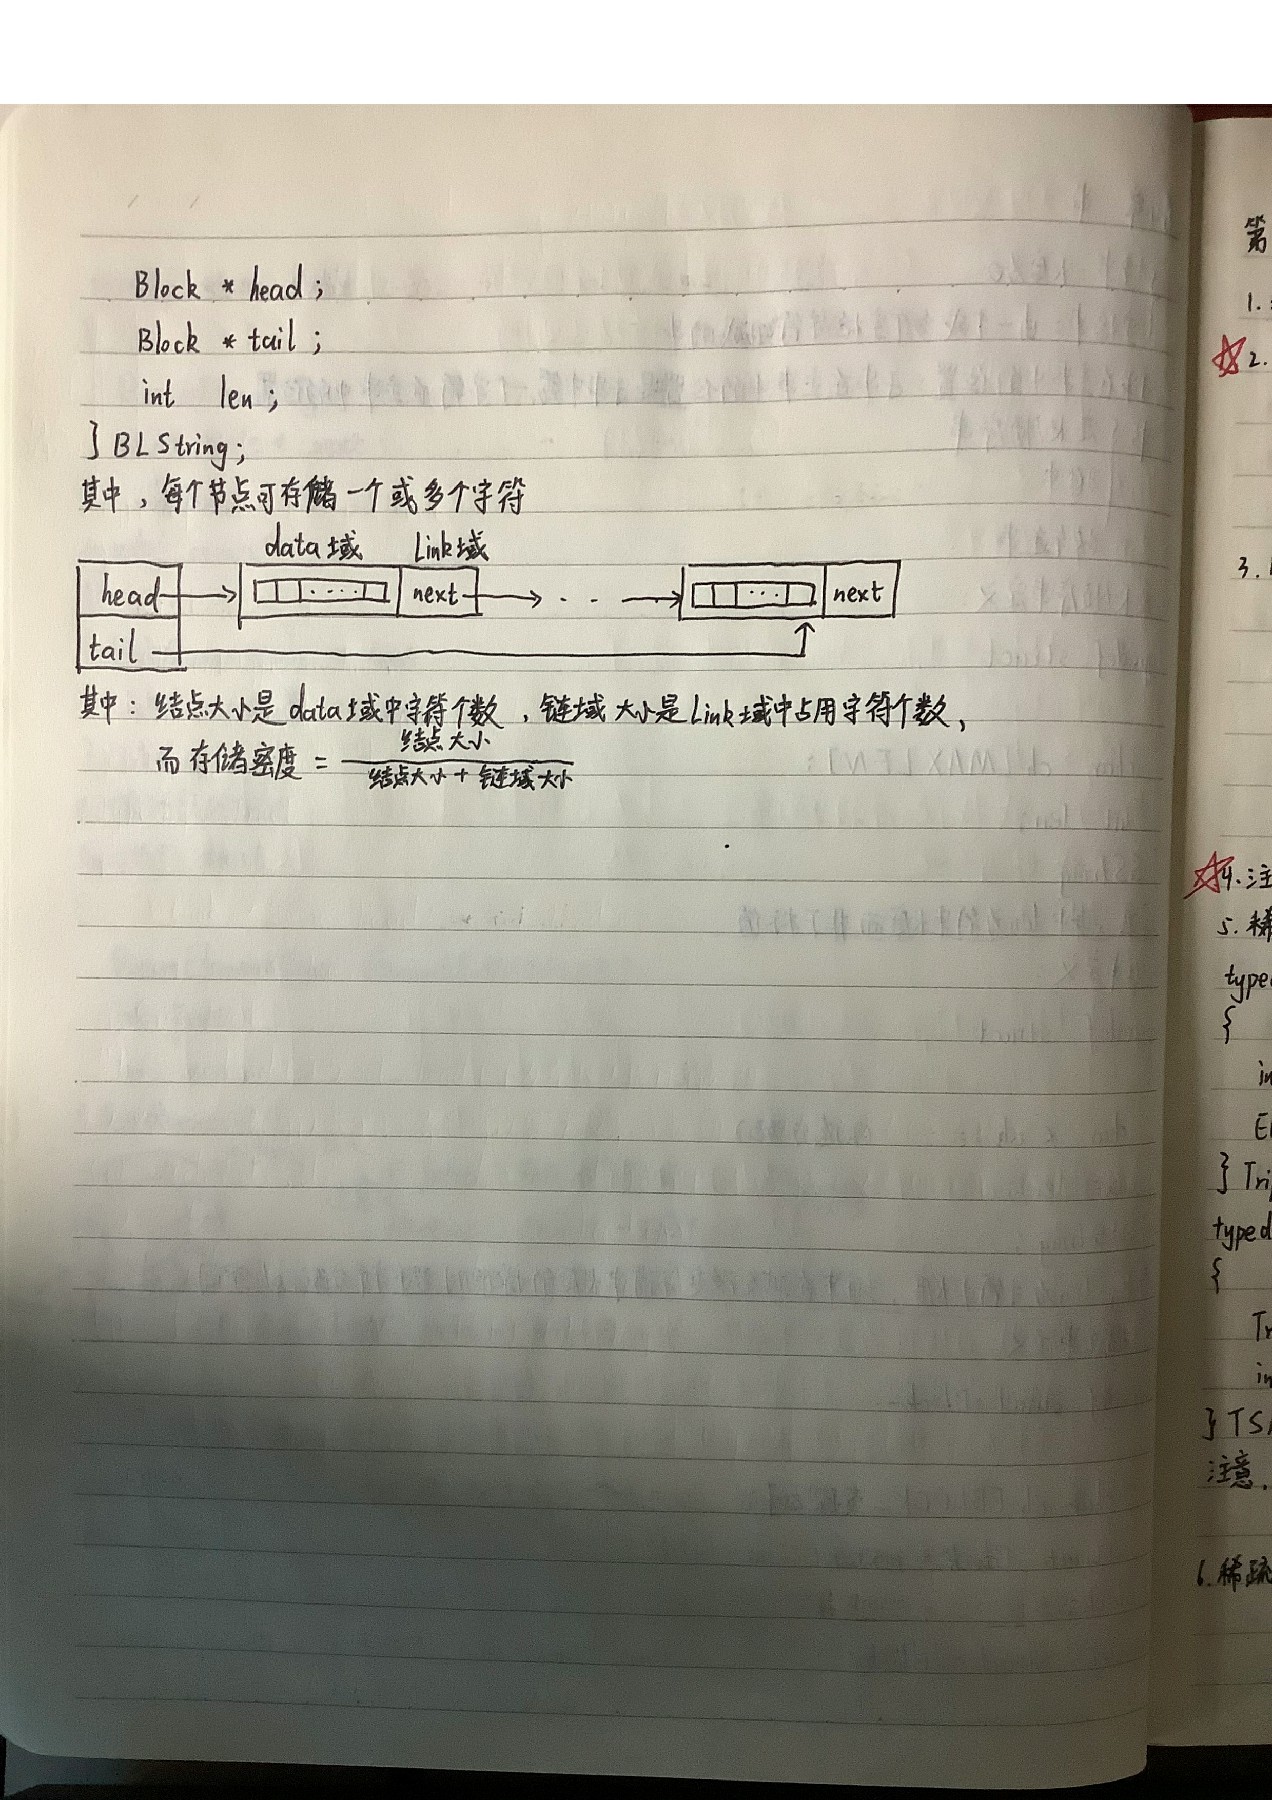 Block * head ;
Block * tail ;
int len ;
} BLString;
其中，每个节点可存储一个或多个字符
data域 Link域
head next . . . . next
tail
其中：结点大小是data域中字符个数，链域大小是Link域中占用字符个数，
而存储密度 = 结点大小
结点大小 + 链域大小
第
1.
2.
3.
4.注
5.稀
type
{
in
El
} Tri
typed
{
Tr
in
} TS
注意.
6.稀疏